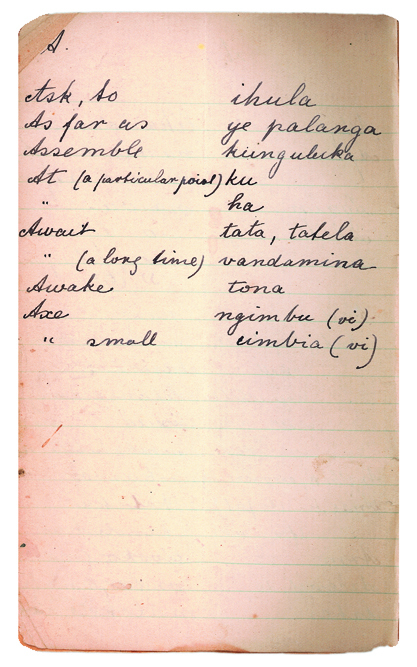 A.
Ask, to ihula
As far as ye palanga
Assemble kunguluka
At (a particular point) ku
" ha
Await tata, tatela
" (a long time) vandamina
Awake tona
Axe ngimbu (vi)
" small cimbia (vi)